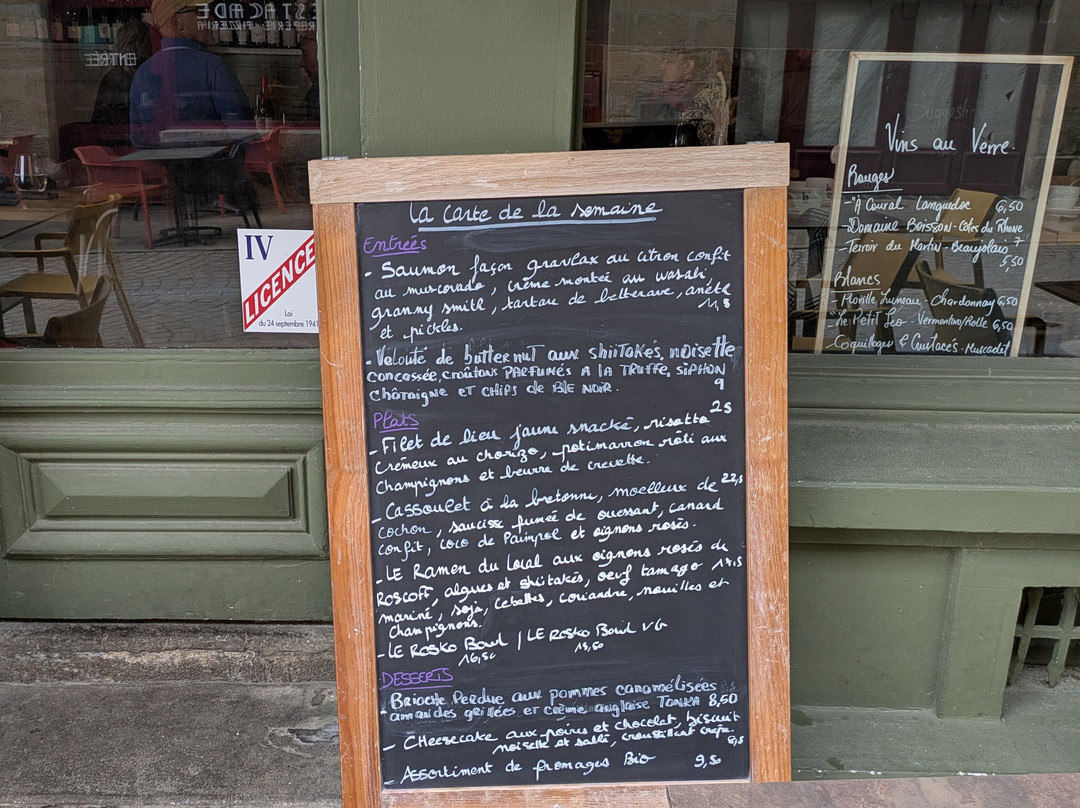 ESTACADE
CREPERIE PIZZERIA
ENTREE
IV
LICENCE
Loi
du 24 septembre 1941
La carte de la semaine
Entrées
- Saumon façon gravlax au citron confit
au muscovado, crème montée au wasabi,
granny smith, tartare de betterave, aneth
et pickles. 11,5
- Velouté de butternut aux shiitakés, noisette
concassée, croûtons parfumés à la truffe, siphon
châtaigne et chips de blé noir. 9
Plats
25
- Filet de lieu jaune snacké, risotto
crémeux au chorizo, potimarron rôti aux
champignons et beurre de crevette.
- Cassoulet à la bretonne, moelleux de 22,5
cochon, saucisse fumée de ouessant, canard
confit, coco de Paimpol et oignons rosés.
- Le Ramen du Local aux oignons rosés de
Roscoff, algues et shiitakés, oeuf tamago 17,5
mariné, soja, cebettes, coriandre, nouilles et
champignons.
- Le Rosko Bowl | Le Rosko Bowl VG
16,50 15,50
Desserts
- Brioche Perdue aux pommes caramélisées
amandes grillées et crème anglaise Tonka 8,50
- Cheesecake aux poires et chocolat, biscuit
noisette et sablé, croustillant crêpe.
8,5
- Assortiment de fromages Bio 9,50
Suggestio
Vins au Verre.
Rouges
- A Coural Languedoc 6,50
- Domaine Boisson - Côtes du Rhône
7
- Terroir du Martin - Beaujolais
5,50
Blancs
- Moville Luneau - Chardonnay 6,50
- Le Petit Léo - Vermentino/Rolle 6,50
Coquillages & Crustacés - Muscadet